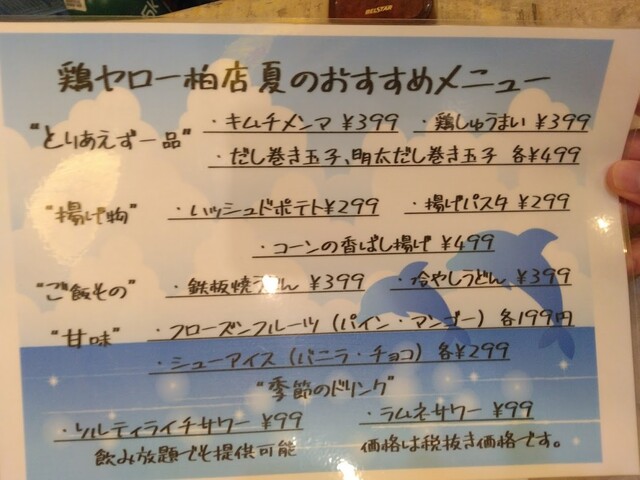 BELSTAR
鶏ヤロー柏店夏のおすすめメニュー
"とりあえず一品" ・キムチメンマ ¥399 ・鶏しゅうまい ¥399
・だし巻き玉子、明太だし巻き玉子 各¥499
"揚げ物" ・ハッシュドポテト¥299 ・揚げパスタ ¥299
・コーンの香ばし揚げ ¥499
"ご飯もの" ・鉄板焼うどん ¥399 ・冷やしうどん ¥399
"甘味" ・フローズンフルーツ（パイン・マンゴー）各199円
・シューアイス（バニラ・チョコ）各¥299
"季節のドリンク"
・ソルティライチサワー ¥99 ・ラムネサワー ¥99
飲み放題でも提供可能 価格は税抜き価格です。